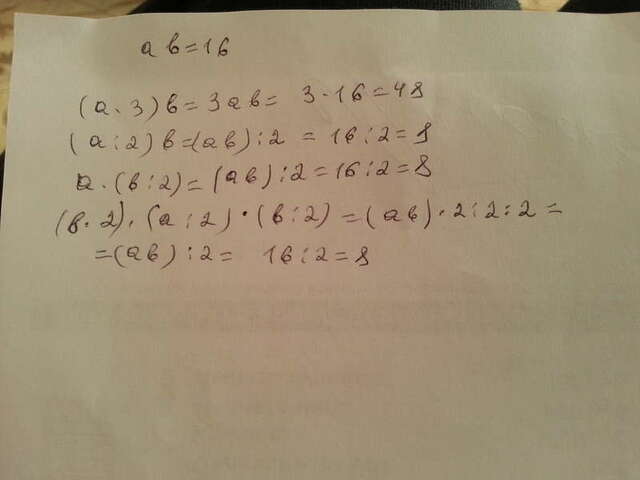 ab=16
(a·3)b=3ab= 3·16=48
(a:2)b=(ab):2 = 16:2=8
a·(b:2)=(ab):2=16:2=8
(b·2)·(a:2)·(b:2)=(ab)·2:2:2=
=(ab):2= 16:2=8